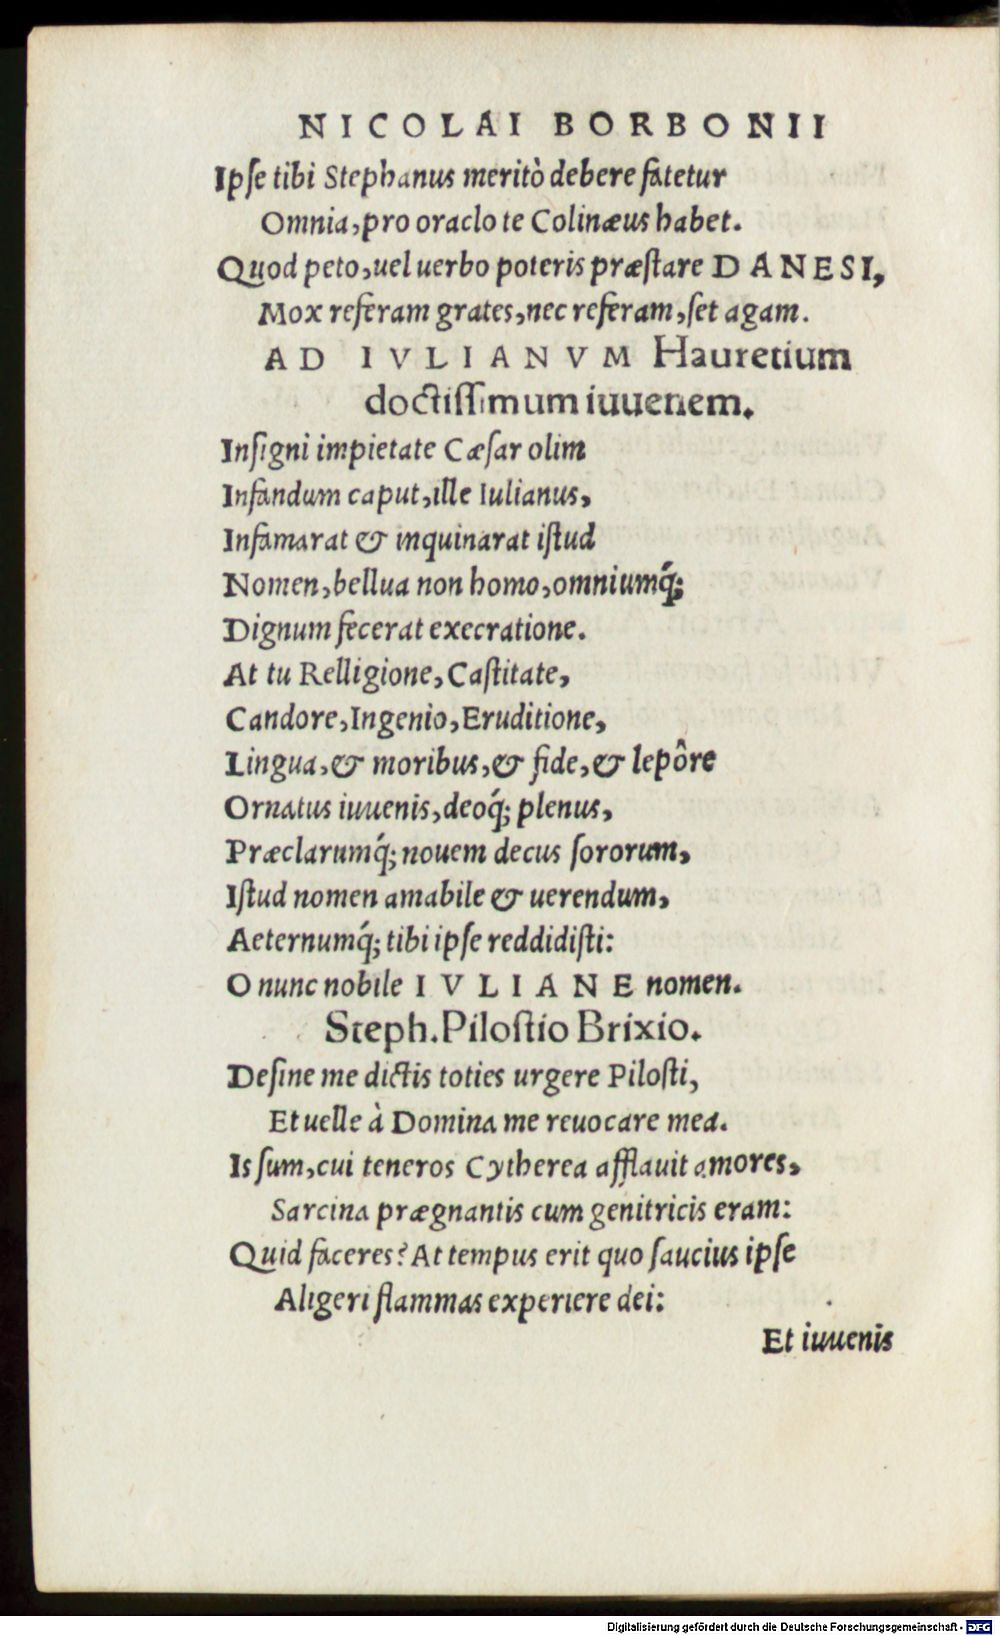 NICOLAI BORBONII
Ipse tibi Stephanus meritò debere fatetur
Omnia, pro oraclo te Colinæus habet.
Quod peto, uel uerbo poteris præstare DANESI,
Mox referam grates, nec referam, set agam.
AD IVLIANVM Hauretium
doctissimum iuuenem.
Insigni impietate Cæsar olim
Infandum caput, ille Iulianus,
Infamarat & inquinarat istud
Nomen, bellua non homo, omniumq́;
Dignum fecerat execratione.
At tu Relligione, Castitate,
Candore, Ingenio, Eruditione,
Lingua, & moribus, & fide, & lepôre
Ornatus iuuenis, deoq́; plenus,
Præclarumq́; nouem decus sororum,
Istud nomen amabile & uerendum,
Aeternumq́; tibi ipse reddidisti:
O nunc nobile IVLIANE nomen.
Steph. Pilostio Brixio.
Desine me dictis toties urgere Pilosti,
Et uelle à Domina me reuocare mea.
Is sum, cui teneros Cytherea afflauit amores,
Sarcina prægnantis cum genitricis eram:
Quid faceres? At tempus erit quo saucius ipse
Aligeri flammas experiere dei:
Et iuuenis
Digitalisierung gefördert durch die Deutsche Forschungsgemeinschaft - DFG